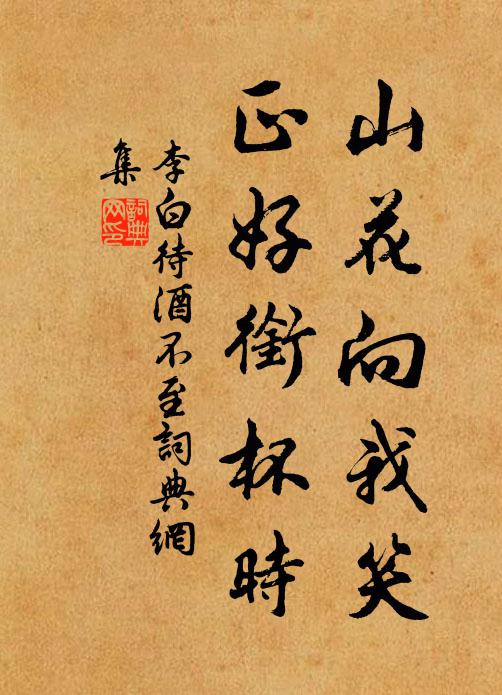 山花向我笑
正好銜杯時
李白待酒不至詞典網
集
詞典
网印